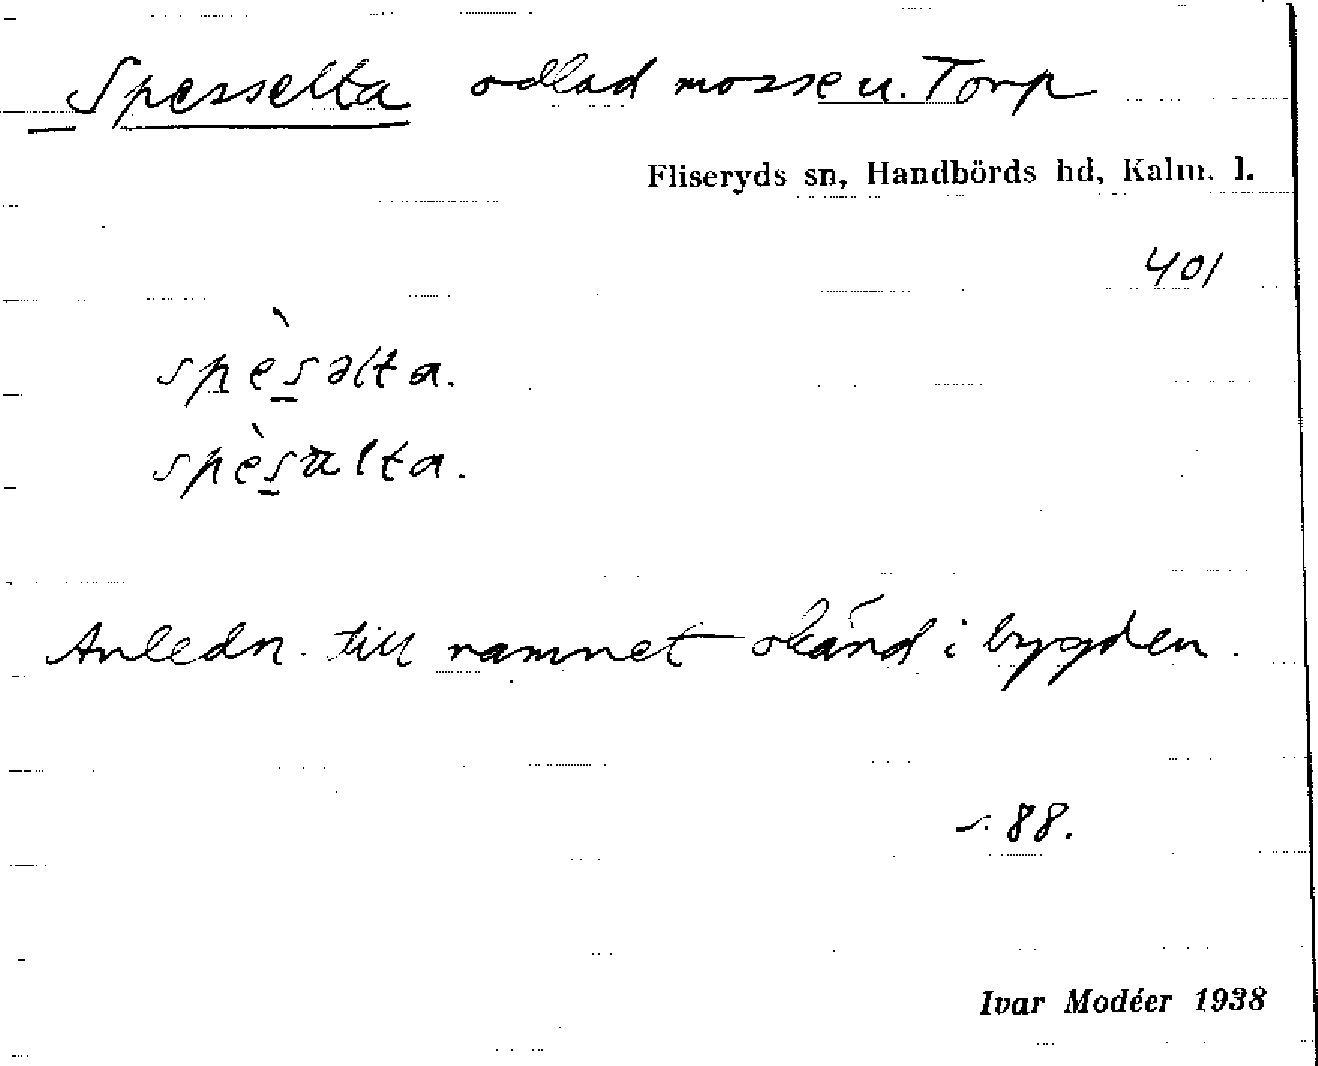 Spesselta odlad mosse u. Torp
Fliseryds sn, Handbörds hd, Kalm. l.
401
spèsəlta.
spèsälta.
Anledn. till namnet okänd i bygden.
s. 88.
Ivar Modéer 1938